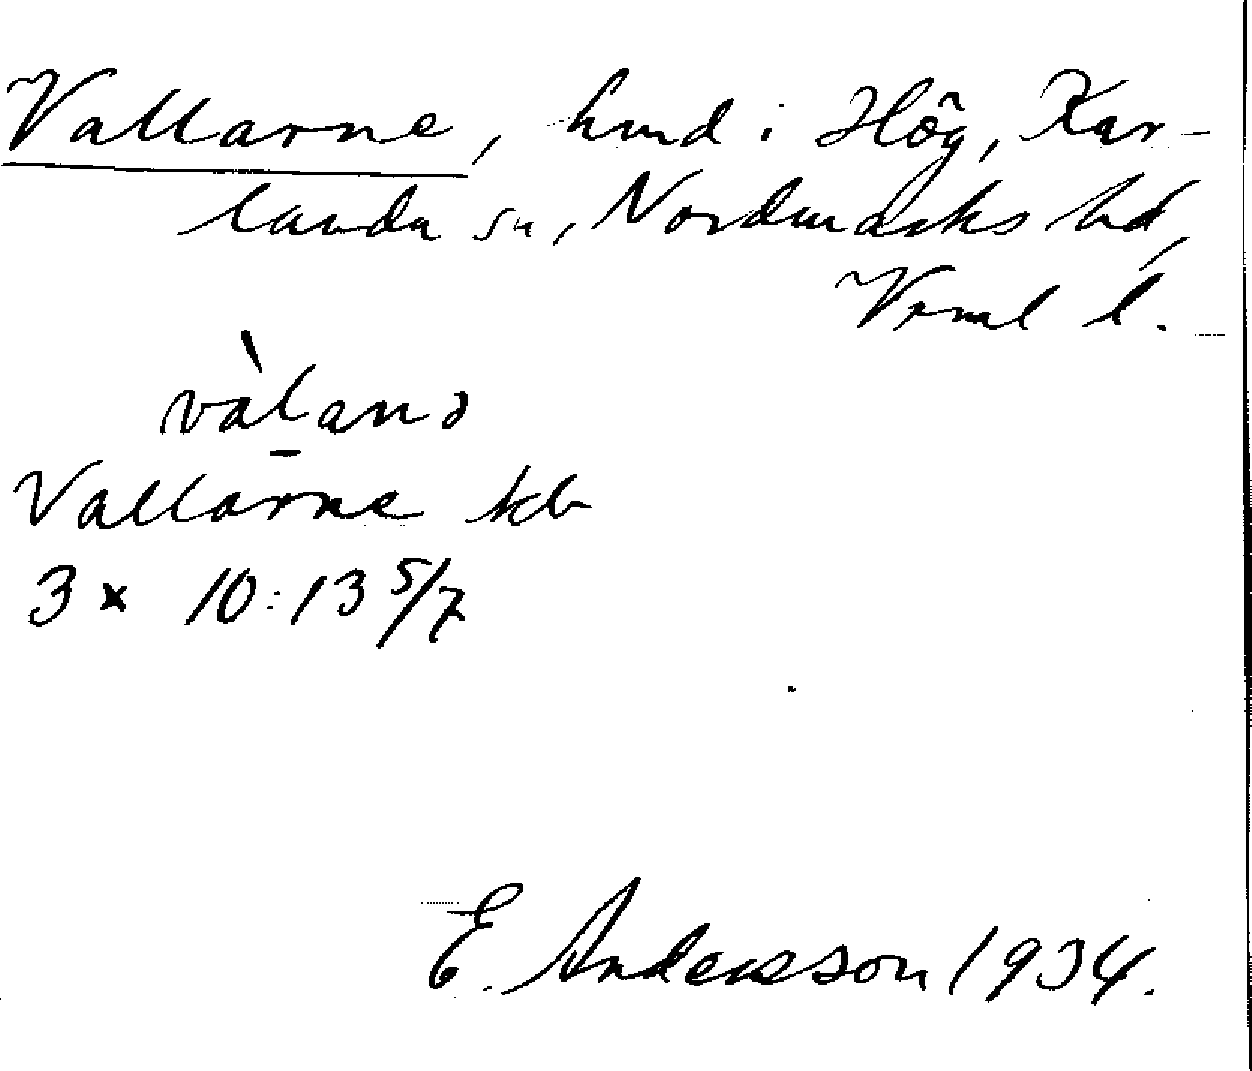 Vallarne, hmd i Hög, Kar-
landa sn, Nordmarks hd,
Vrml l.
vàlanə
Vallarne kb
3 x 10:13 5/7
E. Andersson 1934.